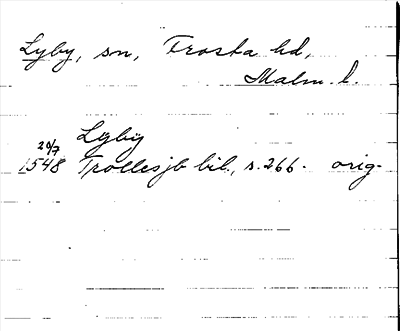 Lyby, sn, Frosta hd,
Malm. l.
Lyby
20/7
1548 Trollesjb bil., s. 266. orig.